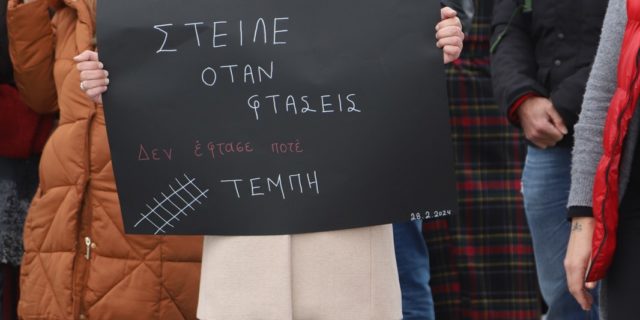 ΣΤΕΙΛΕ
ΟΤΑΝ
ΦΤΑΣΕΙΣ
Δεν έφτασε ποτέ
ΤΕΜΠΗ
28.2.2024